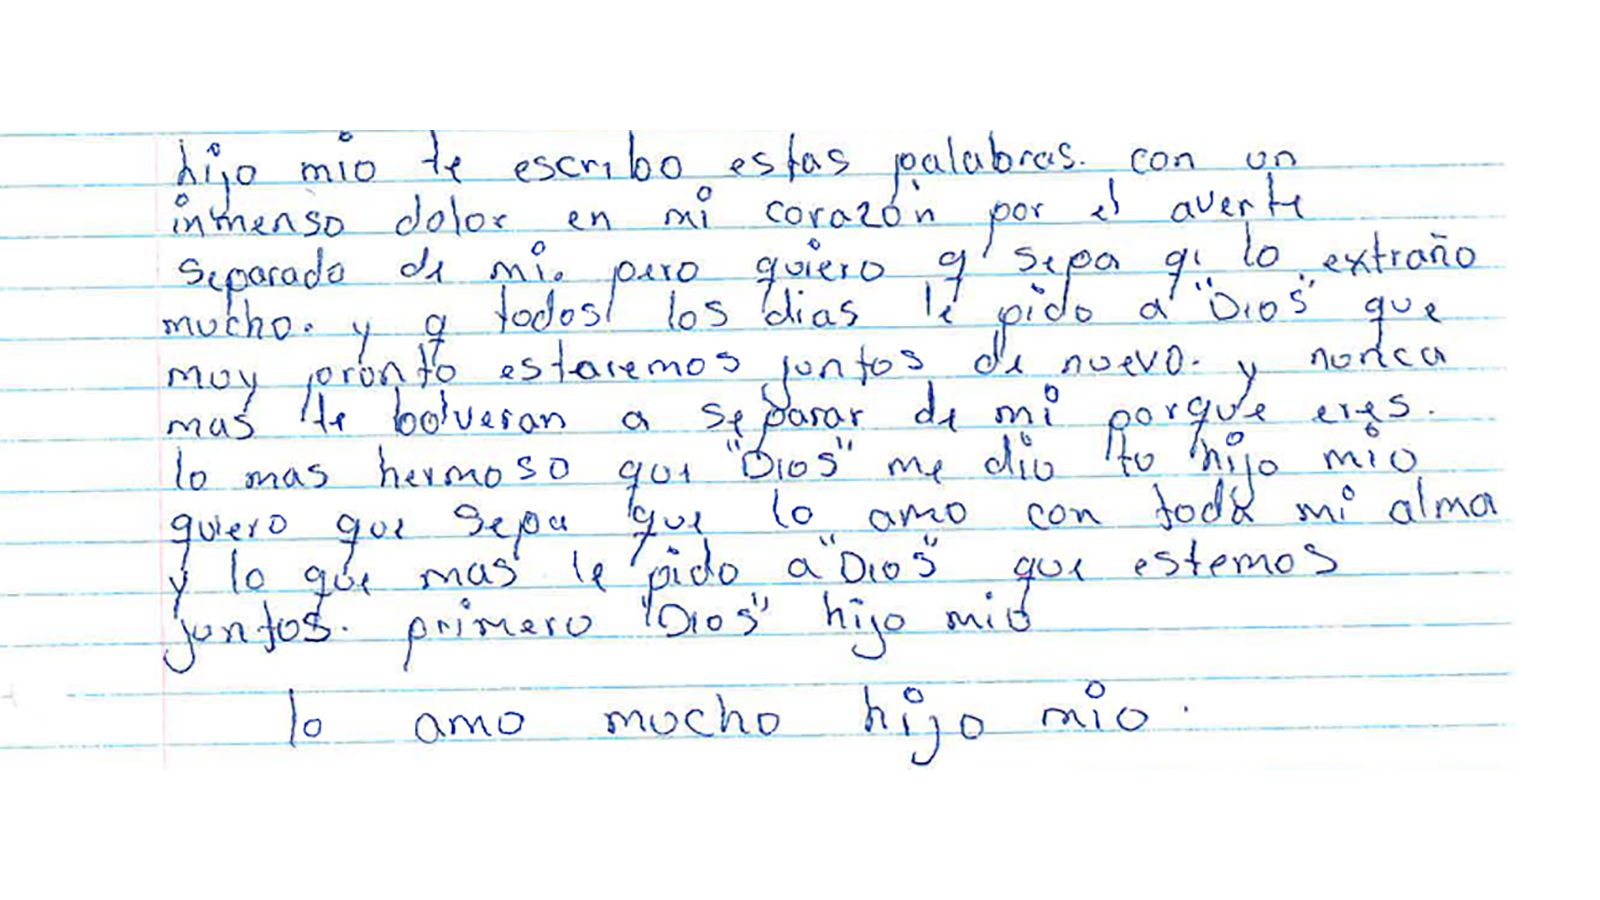 hijo mio te escribo estas palabras. con un
inmenso dolor en mi corazón por el averte
separado de mi. pero quiero q' sepa q' lo extraño
mucho. y q todos los dias le pido a "Dios" que
muy pronto estaremos juntos de nuevo. y nunca
mas te bolveran a separar de mi porque eres.
lo mas hermoso que "Dios" me dio tu hijo mio
quiero que sepa que lo amo con toda mi alma
y lo que mas le pido a "Dios" que estemos
juntos. primero "Dios" hijo mio
lo amo mucho hijo mio.